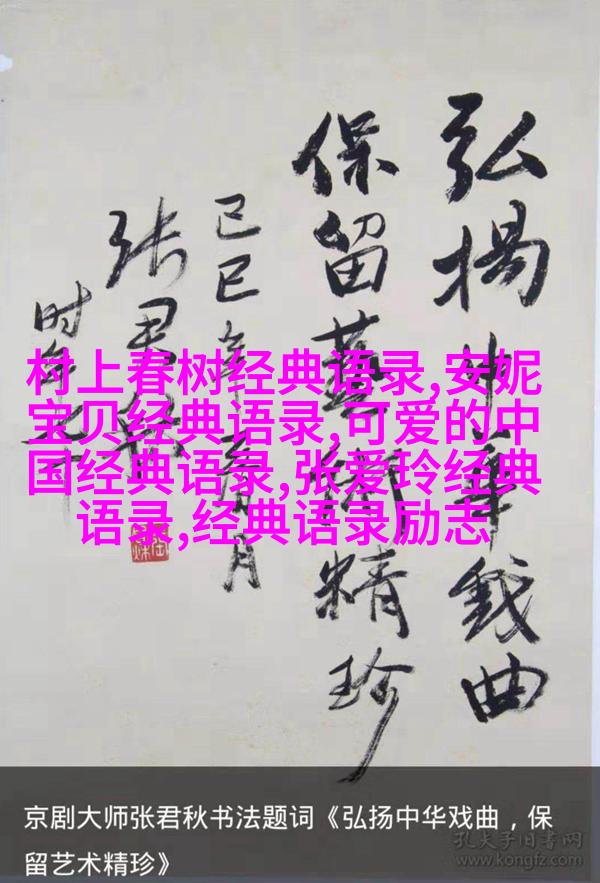 弘揚中華戲曲
保留藝術精珍
己巳年
张君秋
时年
村上春树经典语录,安妮
宝贝经典语录,可爱的中
国经典语录,张爱玲经典
语录,经典语录励志
京剧大师张君秋书法题词《弘扬中华戏曲，保
留艺术精珍》
孔夫子旧书网
www.kongfz.com